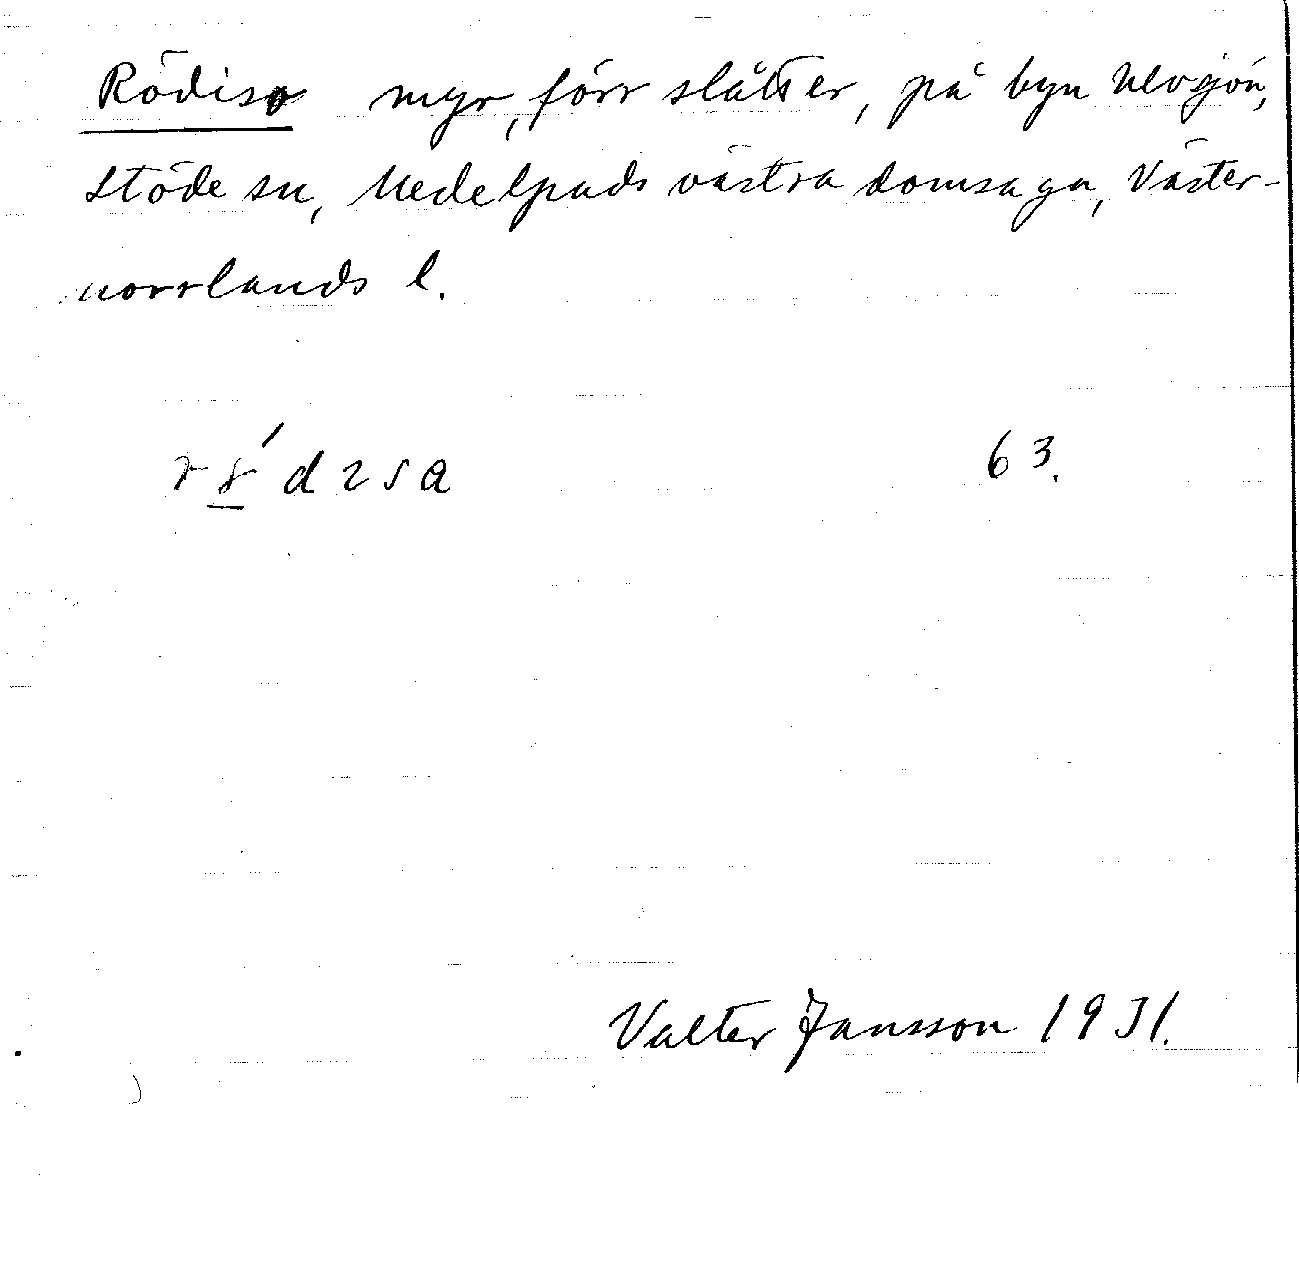 Rödiso myr, förr slåtter, på byn Ulvsjön,
Stöde sn, Medelpads västra domsaga, Väster-
norrlands l.
63.
Valter Jansson 1931.